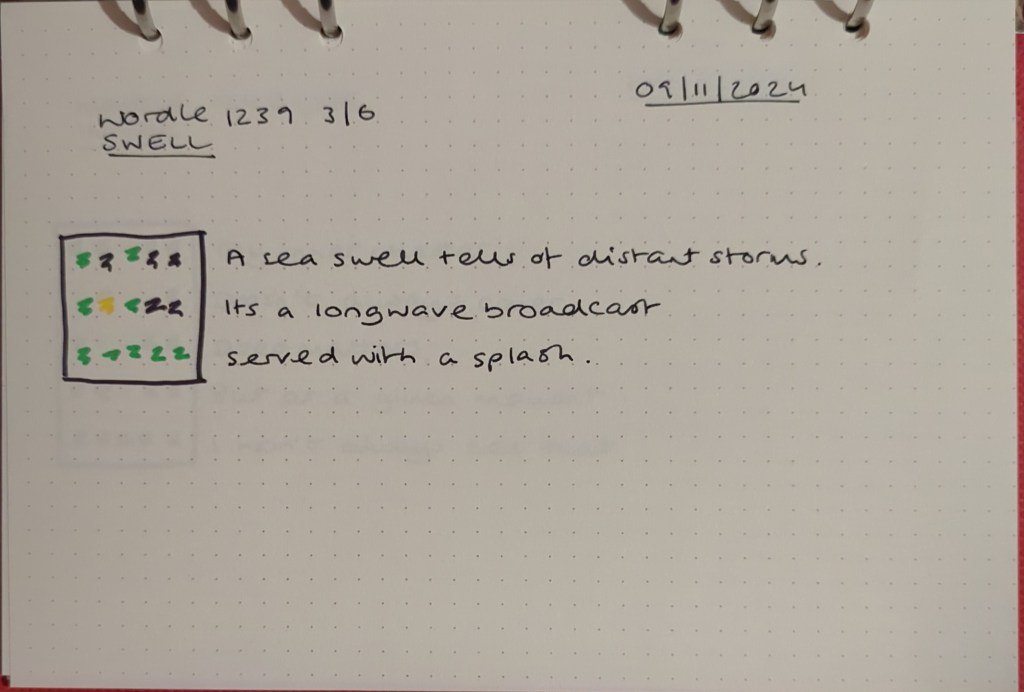 09/11/2024
Wordle 1239 3/6
SWELL
A sea swell tells of distant storms.
Its a longwave broadcast
served with a splash.